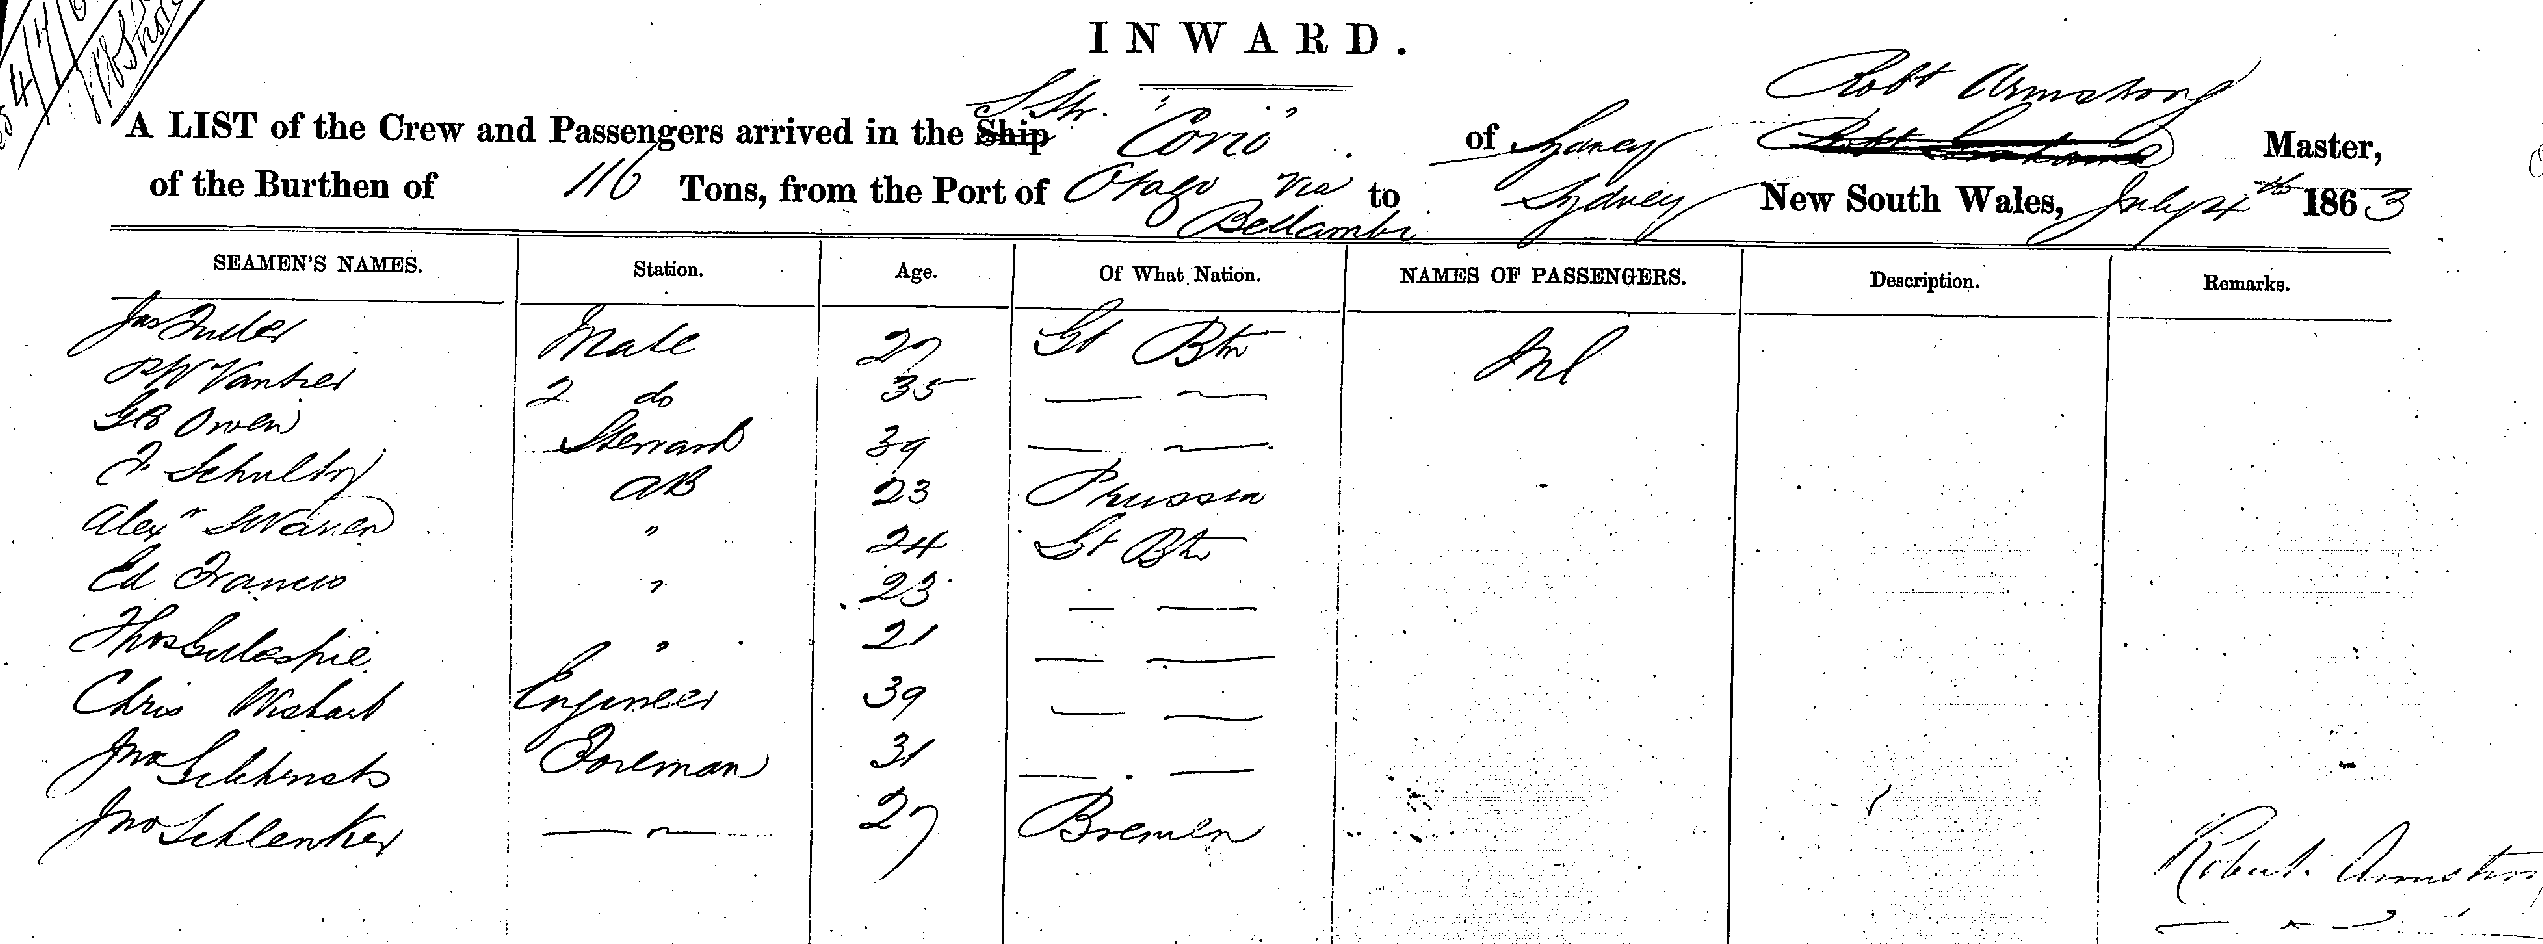 INWARD.
A LIST of the Crew and Passengers arrived in the Ship S Str. "Corio" of Sydney Robt Armstrong Master,
of the Burthen of 116 Tons, from the Port of Otago via Bellambi to Sydney New South Wales, July 4th 1863
SEAMEN'S NAMES. Station. Age. Of What Nation. NAMES OF PASSENGERS. Description. Remarks.
Jas Mate 27 Gt Btn Nil
P W 2 do 35 — ~
G B Owen Steward 39 — ~
F Schultz AB 23 Prussia
Alexr " 24 Gt Btn
Ed Francis " 23 — —
Thos Gillespie " 21 — —
Chris Wishart Engineer 39 — —
Jno Foreman 31 — —
Jno Schlenker — " — 27 Bremen
Robert Armstron